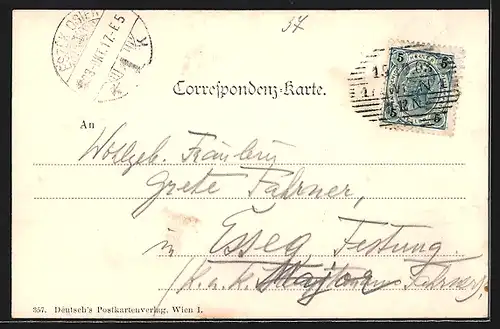 57
ESSEK
Correspondenz-Karte.
5 5
5 5
An
Wohlgeb. Fräulein
Grete Fahrner,
in Esseg Festung
(k. u. k. Fahrner)
357. Deutsch's Postkartenverlag, Wien I.